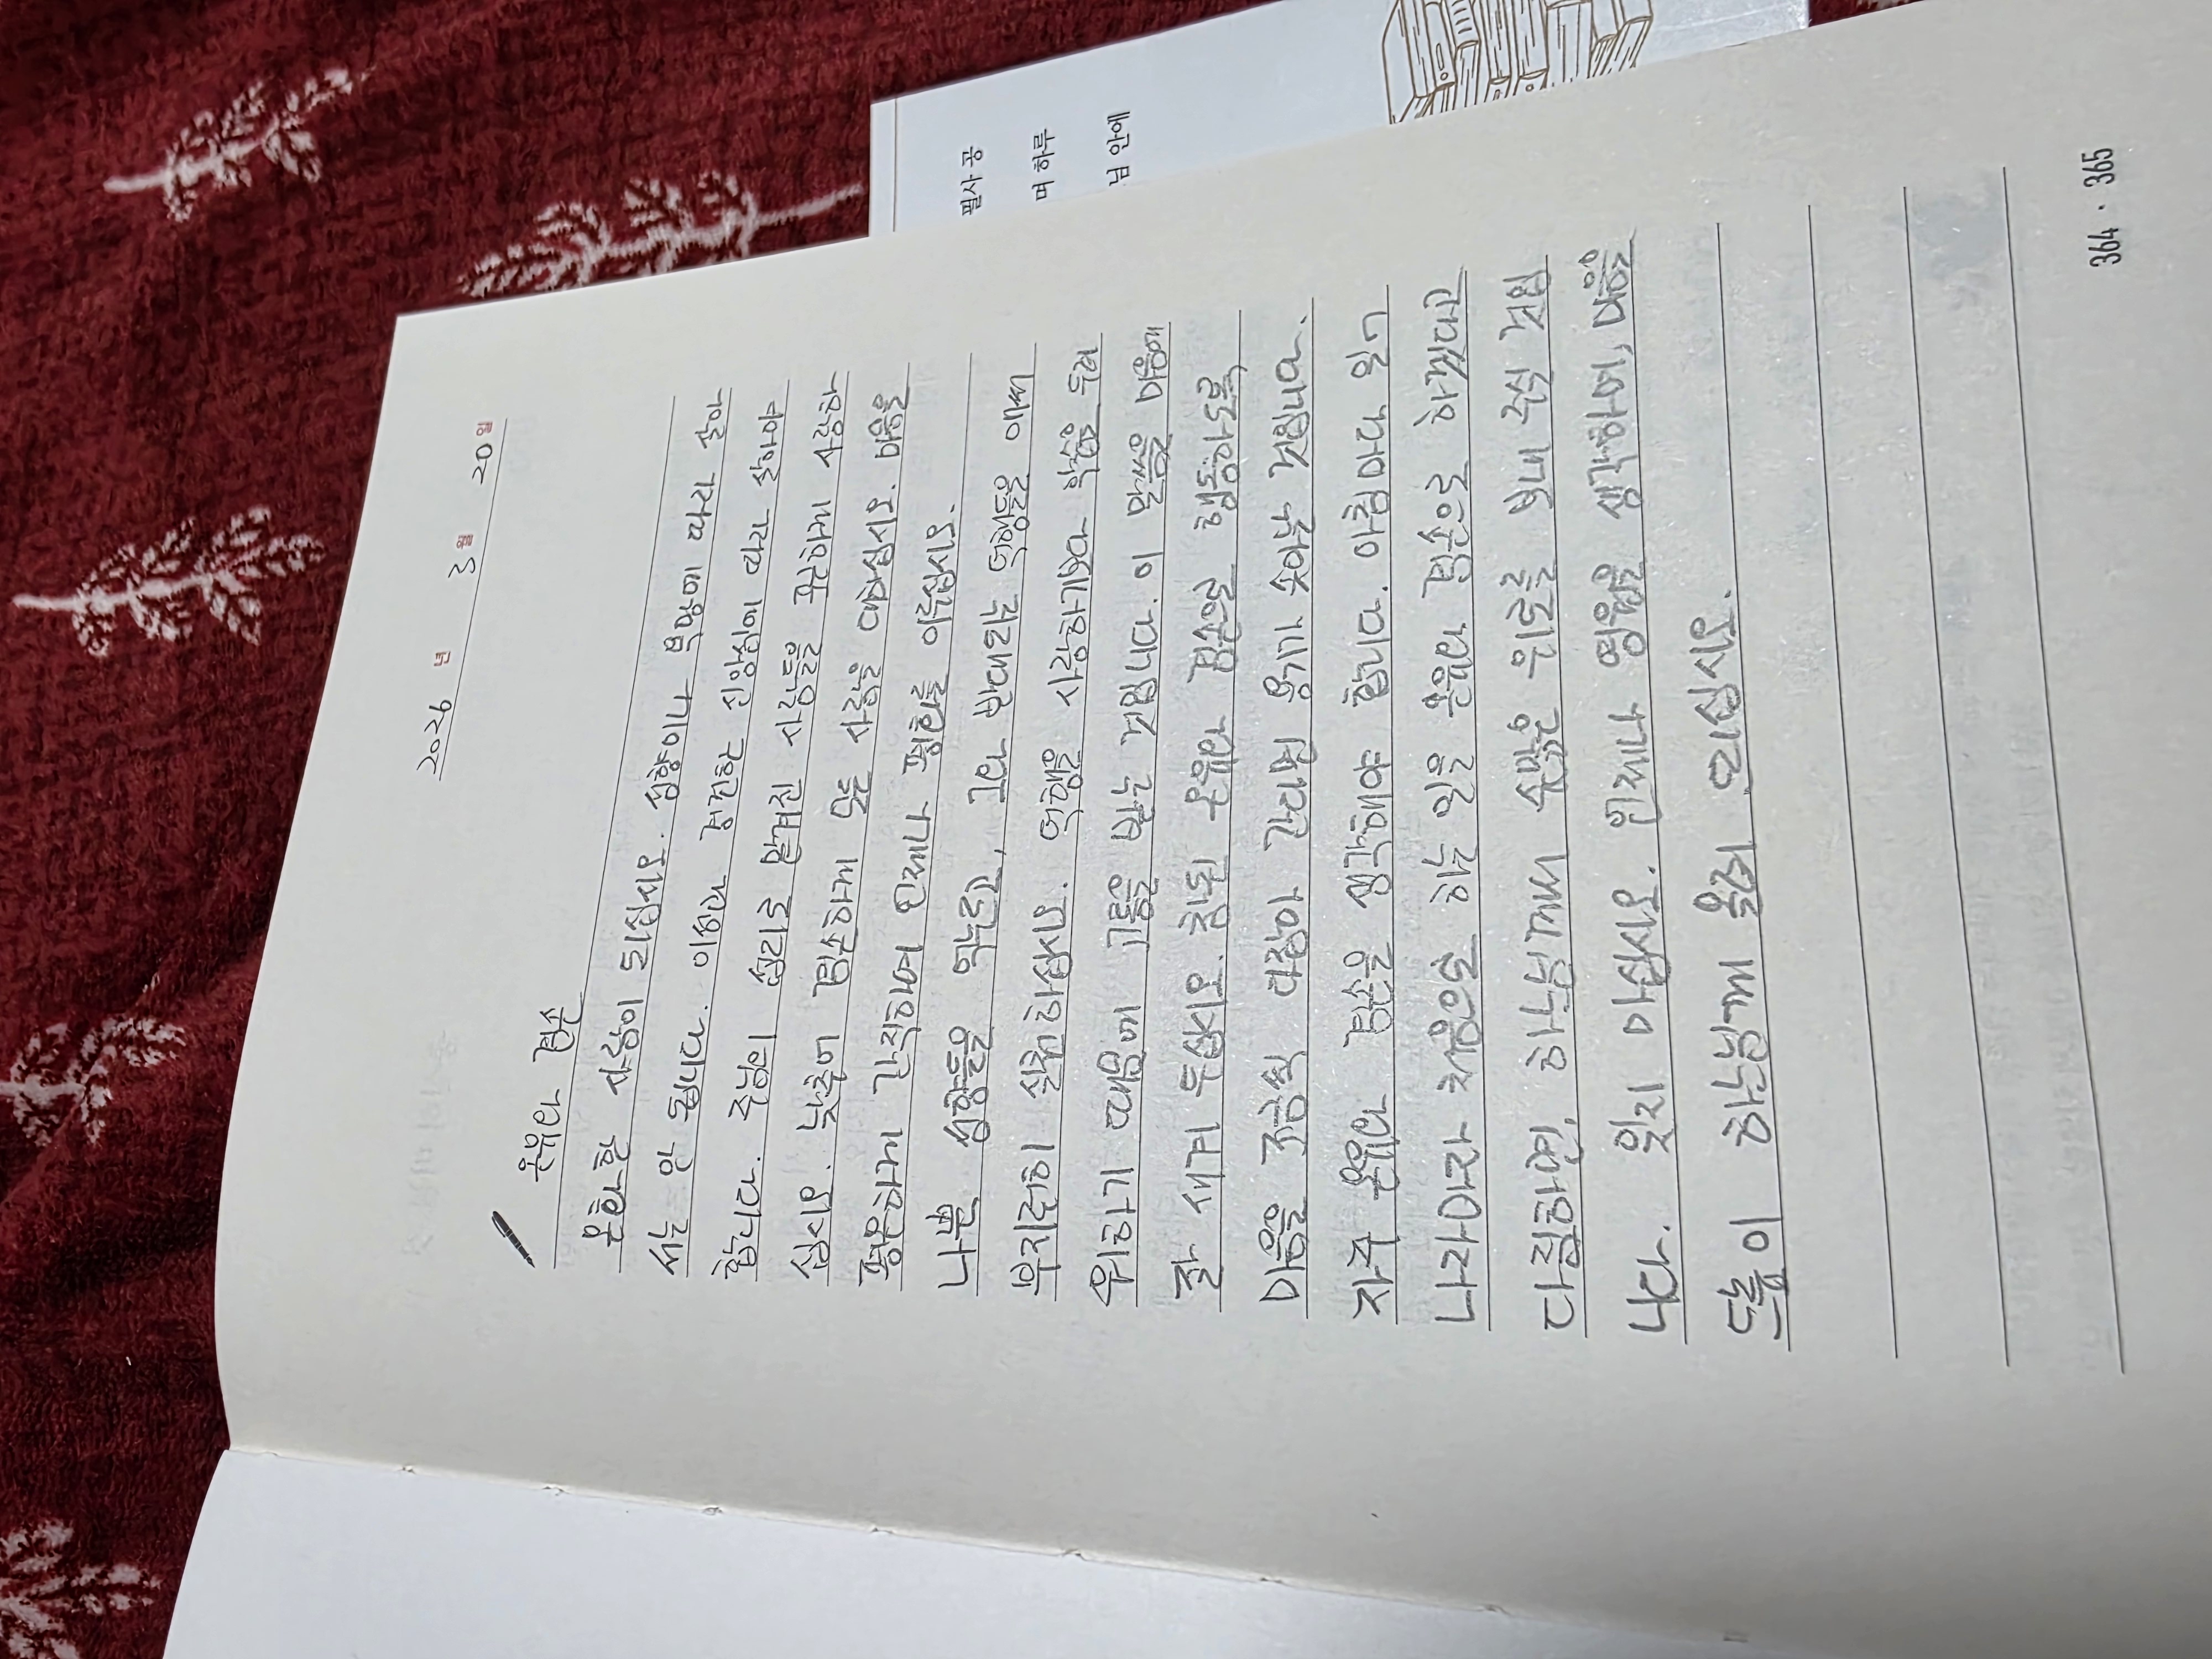 2026 년 3 월 20 일
온유와 겸손
온화한 사람이 되십시오. 성향이나 욕망에 따라 살아
서는 안 됩니다. 이성과 경건한 신앙심에 따라 살아야
합니다. 주님의 섭리로 맡겨진 사람들을 고귀하게 사랑하
십시오. 낮추며 겸손하게 모든 사람을 대하십시오. 마음을
평온하게 간직하며 언제나 평화를 이루십시오.
나쁜 성향들을 억누르고, 그와 반대되는 덕행들을 애써
부지런히 실천하십시오. 덕행을 사랑하겠다 확약을 두려
워하기 때문에 그들을 받는 것입니다. 이 말씀을 마음에
잘 새겨 두십시오. 침되 온유와 겸손을 행동하도록
마음을 조금씩 다잡아 간다면 용기가 솟아날 것입니다.
자주 온유와 겸손을 생각해야 합니다. 아침마다 일어
나자마자 처음으로 하는 일을 온유와 겸손으로 하겠다고
다짐하면, 하느님께서 수많은 위로를 보내 주실 것입
니다. 잊지 마십시오. 언제나 명심을 생각하며, 마음을
높이 하느님께 올려 드리십시오.
364 · 365
필사 공
며 하루
님 안에